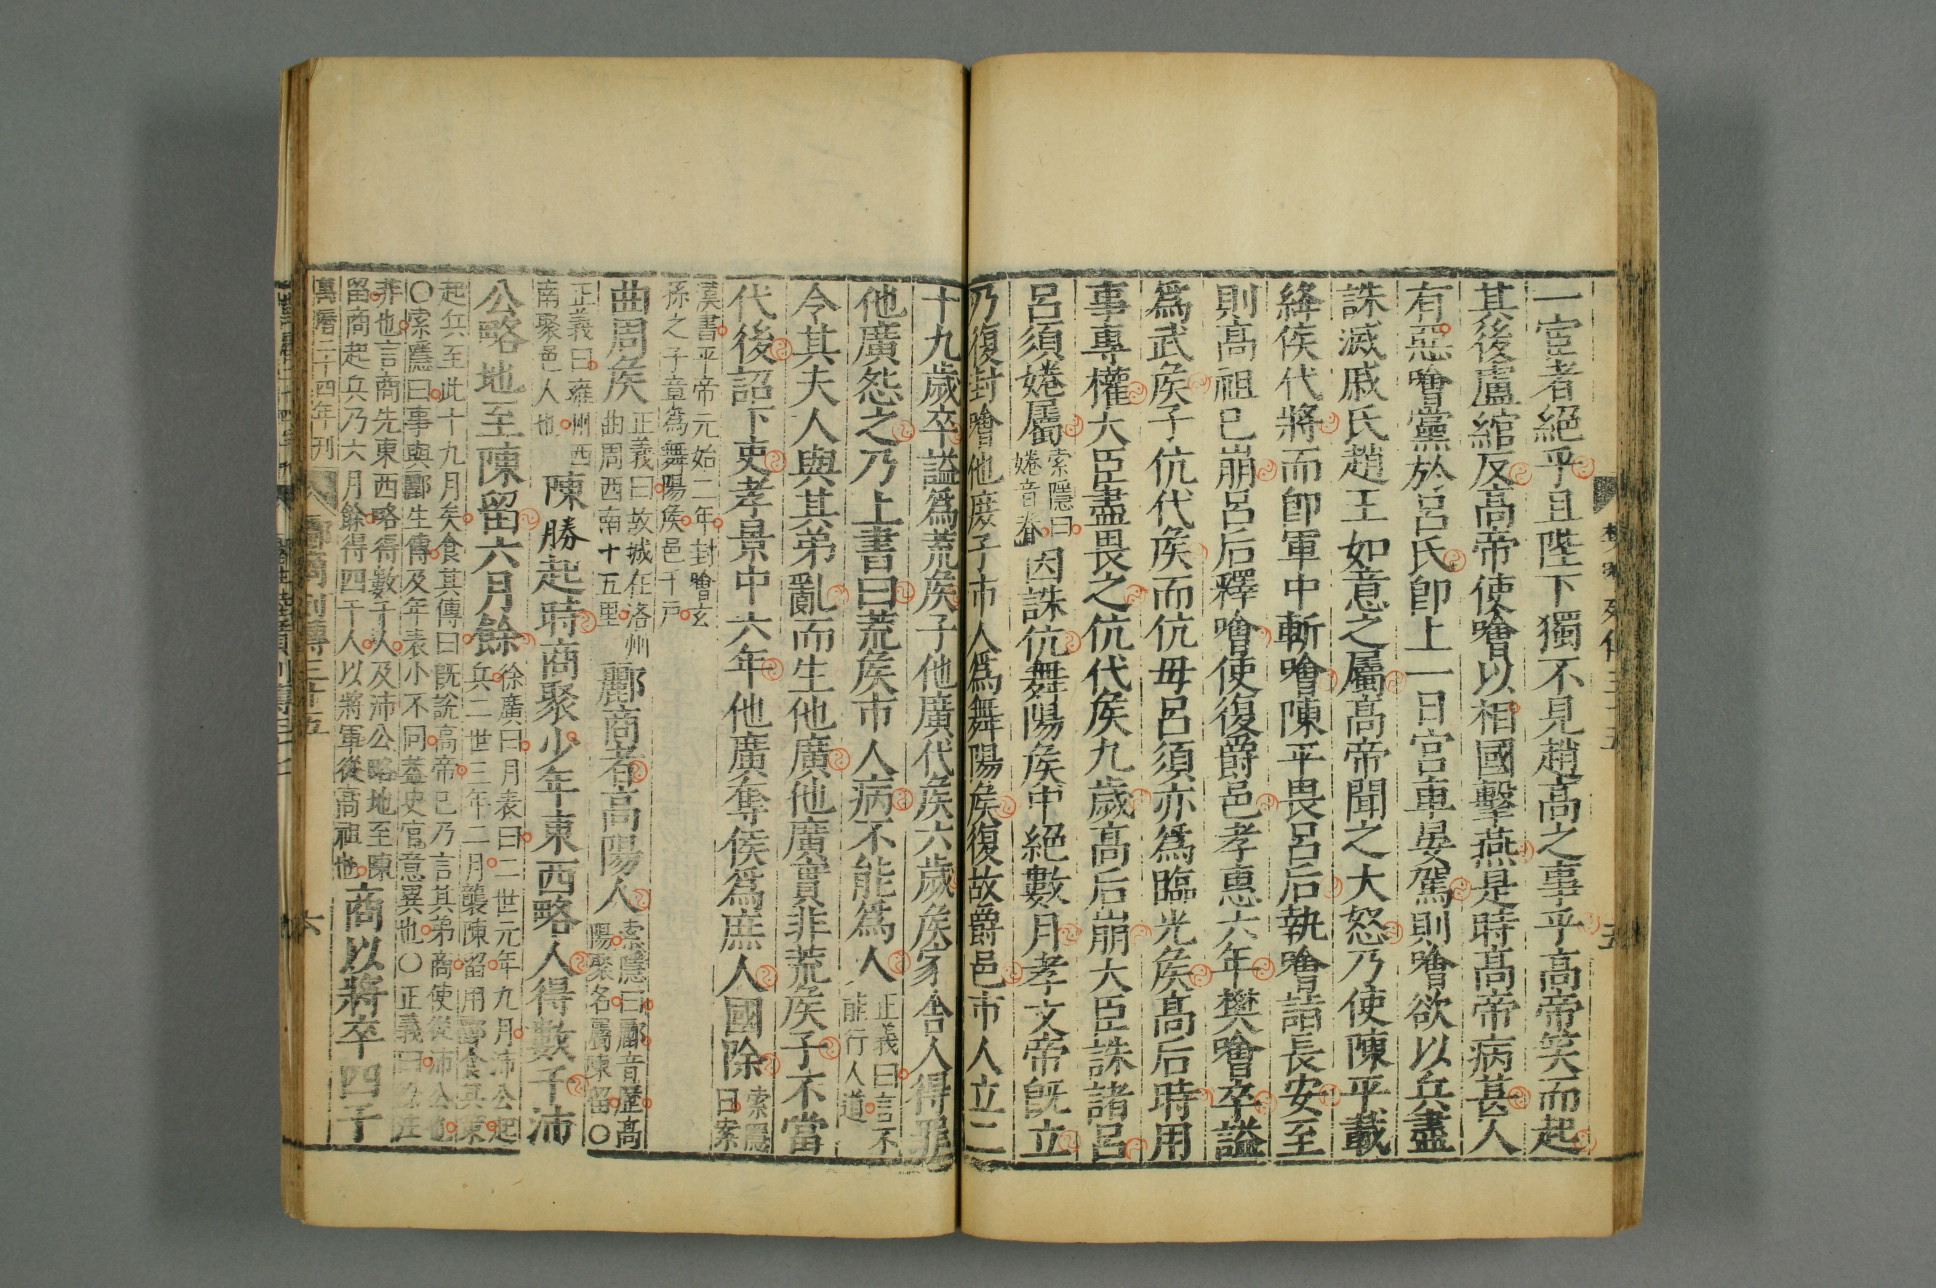 一宦者絕乎且陛下獨不見趙高之事乎高帝笑而起
其後盧綰反高帝使噲以相國擊燕是時高帝病甚人
有惡噲黨於呂氏卽上一日宮車晏駕則噲欲以兵盡
誅滅戚氏趙王如意之屬高帝聞之大怒乃使陳平載
絳侯代將而卽軍中斬噲陳平畏呂后執噲詣長安至
則高祖已崩呂后釋噲使復爵邑孝惠六年樊噲卒謚
爲武侯子伉代侯而伉母呂須亦爲臨光侯高后時用
事專權大臣盡畏之伉代侯九歲高后崩大臣誅諸呂
呂須婘屬索隱曰婘音眷因誅伉舞陽侯中絕數月孝文帝旣立
乃復封噲他庶子市人爲舞陽侯復故爵邑市人立二
十九歲卒謚爲荒侯子他廣代侯六歲侯家舍人得罪
他廣怨之乃上書曰荒侯市人病不能爲人正義曰言不能行人道
令其夫人與其弟亂而生他廣他廣實非荒侯子不當
代後詔下吏孝景中六年他廣奪侯爲庶人國除索隱曰案
漢書平帝元始二年封噲玄孫之子章爲舞陽侯邑千戸
曲周侯正義曰故城在洛州曲周西南十五里酈商者高陽人索隱曰酈音歷高陽聚名屬陳留○
正義曰雍州西南聚邑人也陳勝起時商聚少年東西略人得數千沛
公略地至陳留六月餘徐廣曰月表曰二世元年九月沛公起兵二世三年二月襲陳留用酈食其策
起兵至此十九月矣食其傳曰旣說高帝已乃言其弟商使從沛公也○索隱曰事與酈生傳及年表小不同蓋史官意異也○正義曰
非也言商先東西略得數千人及沛公略地至陳留商起兵乃六月餘得四千人以將軍從高祖也商以將卒四千
萬曆二十四年刊
酈商列傳三十五
六
樊 列傳三十五
五